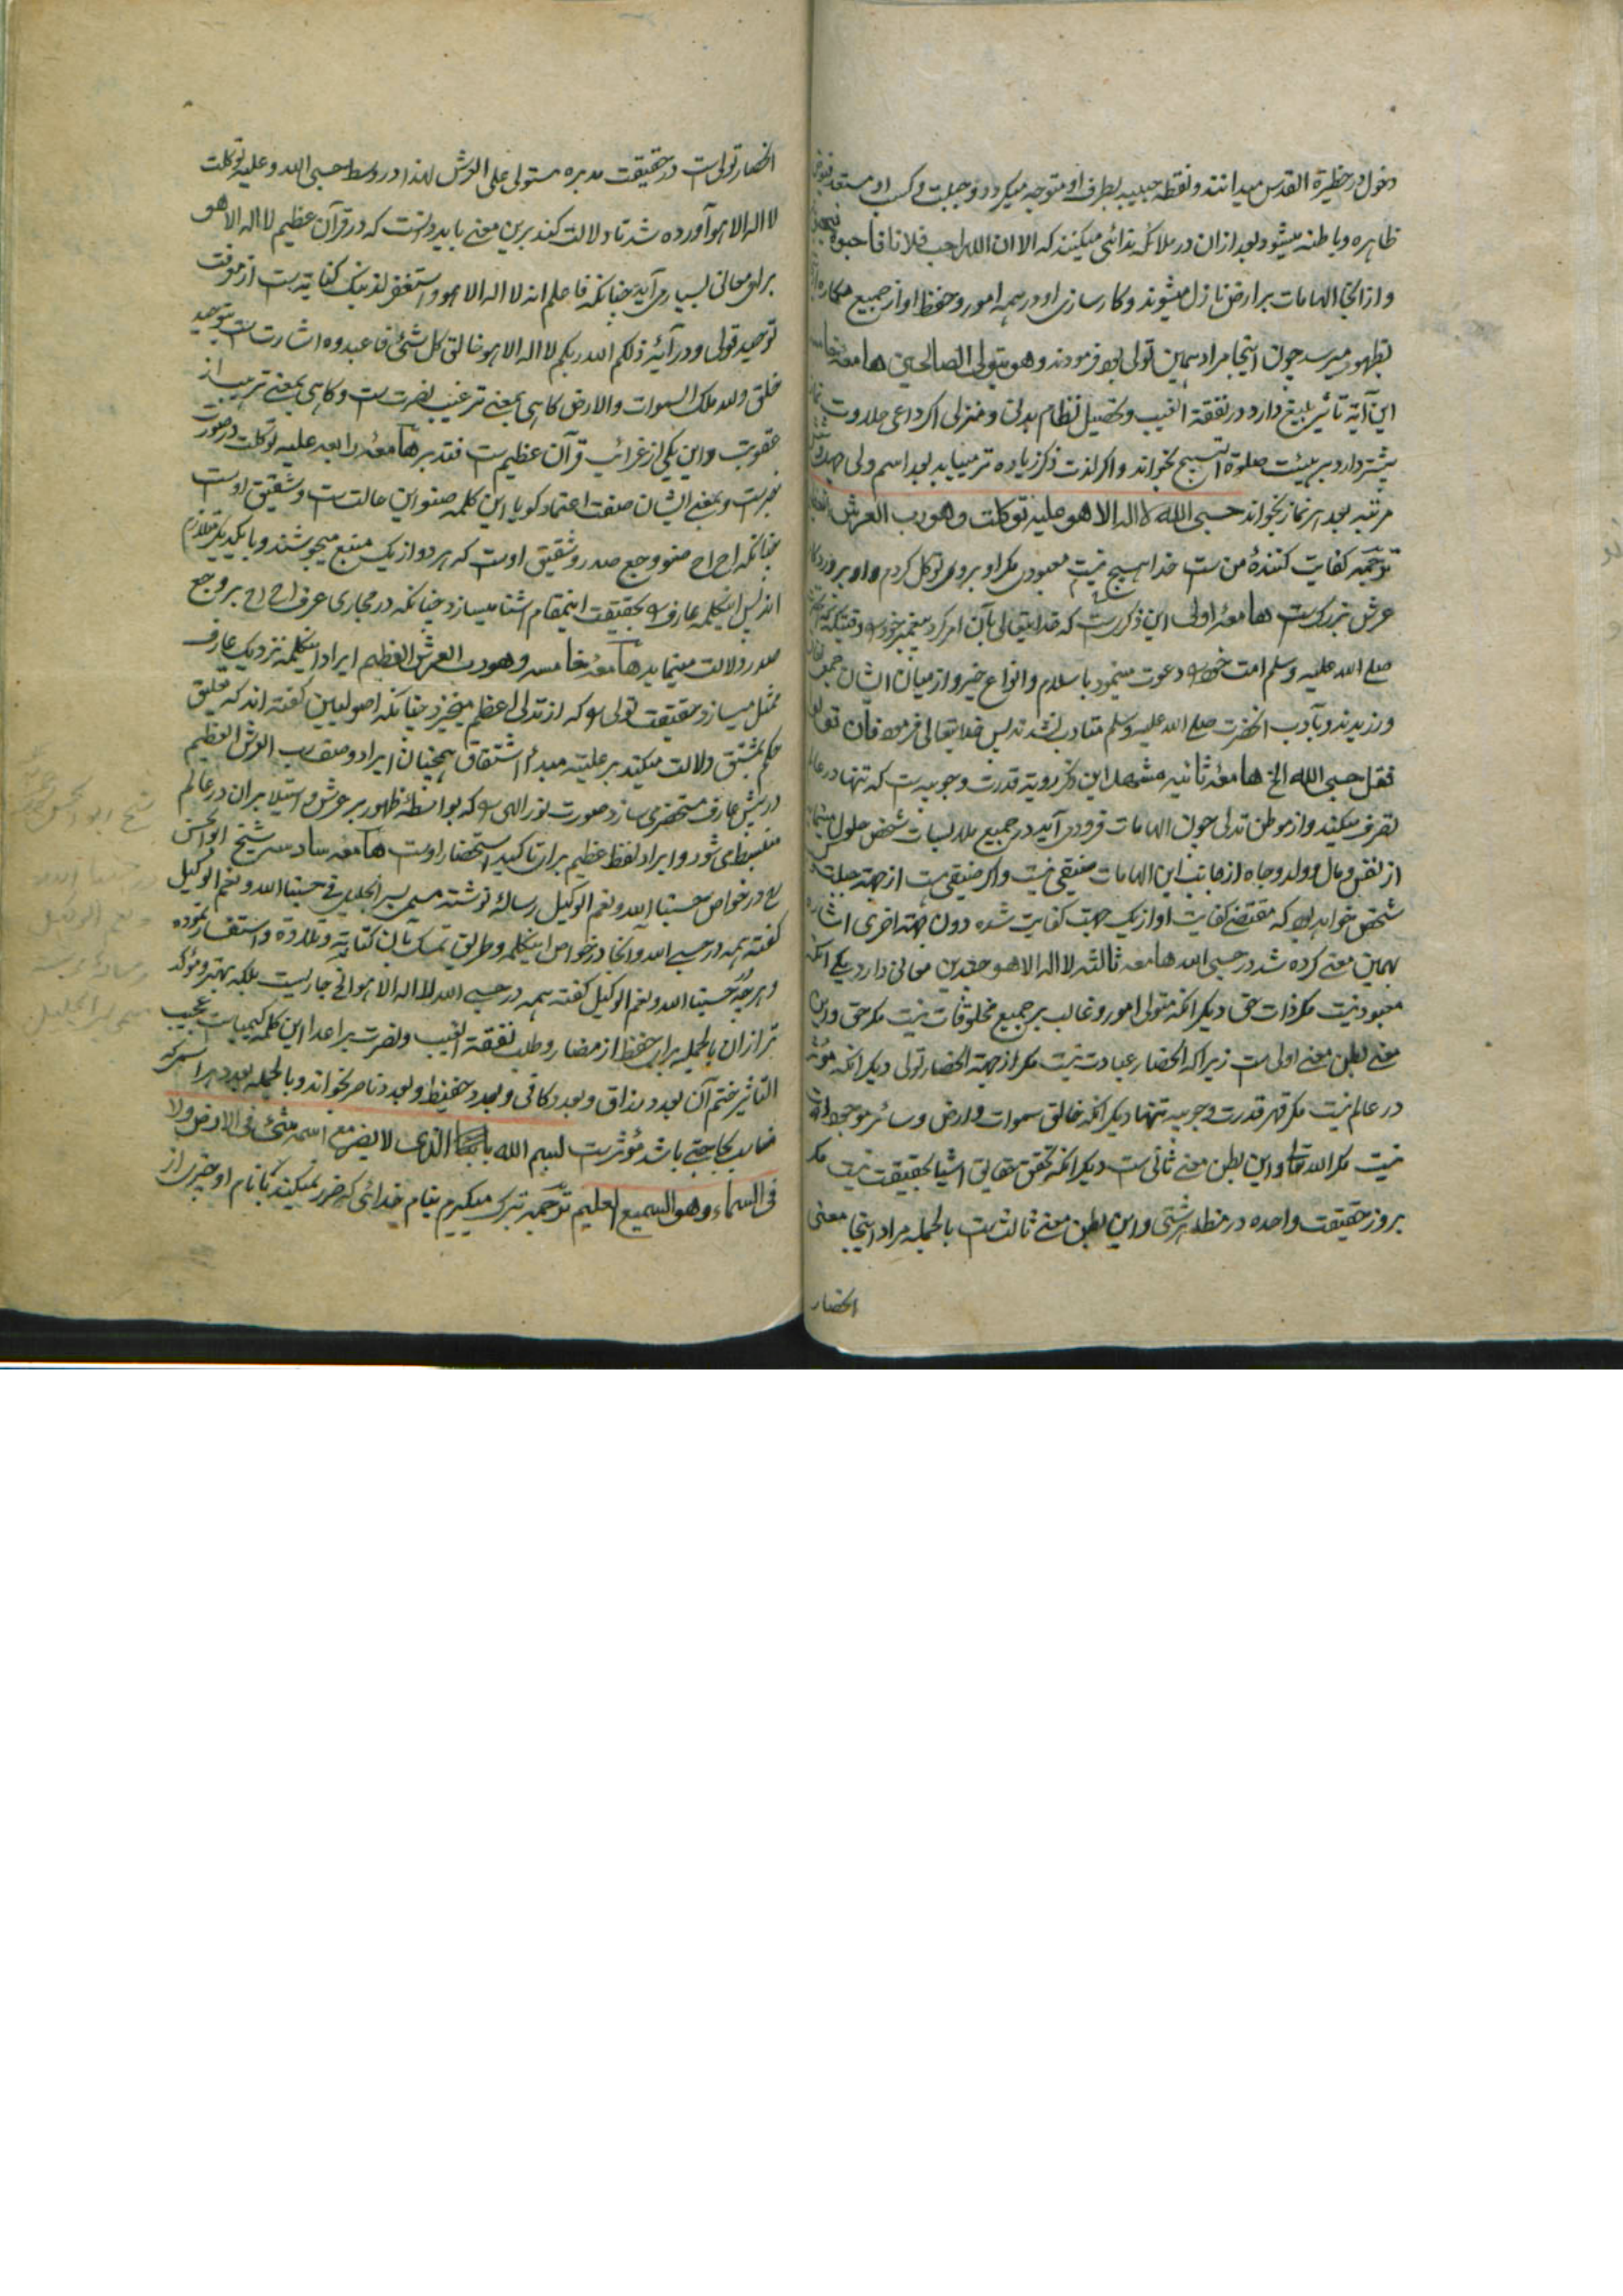 دخول در حظیرة القدس میدانند و نقطه حبیبه بطرف او متوجه میکردد و جبلت و کسب او مستعد فیوض
ظاهره و باطنه میشود و بعد ازان در ملائکه ندائی میکنند که الا ان الله احب فلانا فاحبوه
و از انجا الهامات بر ارض نازل میشوند و کارسازی او در همه امور و حفظ او از جمیع مکاره
بظهور میرسد چون اینجا مراد همین تولی بود فرمودند و هو یتولی الصالحین هامعه خامسه
این آیة تاثیر بلیغ دارد در نفقة الغیب و تحصیل نظام بدنی و منزلی اکر داعی حلاوت
بیشتر دارد بر هیئت صلوة التسبیح بخواند و اکر لذت ذکر زیاده تر مییابد بعدد اسم ولی
مرتبه بعد هر نماز بخواند حسبی الله لا اله الا هو علیه توکلت و هو رب العرش العظیم
ترجمه کفایت کنندهٔ من ست خدا هیچ نیست معبودی مکر او بروی توکل کردم و او پروردکار
عرش بزرک ست هامعهٔ اولی این ذکر ست که خدایتعالی بآن امر کرد پیغمبر خود را وقتیکه
صلی الله علیه وسلم امت خود را دعوت مینمود باسلام و انواع خیر و از میان ایشان جمعی
ورزیدند و بآداب آنحضرت صلی الله علیه وسلم متادب نشدند پس خدایتعالی فرمود فان تولوا
فقل حسبی الله الخ هامعهٔ ثانیه مشهد این ذکر رویة قدرت وجوبیه ست که تنها در عالم
تصرف میکند و از موطن تدلی چون الهامات فرود می آید در جمیع ملابسات شخص حلول مینماید
از نفس و مال و ولد و جاه از جانب این الهامات ضیقی نیست و اکر ضیقی هست از جهة جبلت
شخص خواهد بود که مقتضی کفایت او از یک جهت کفایت شده دون جهة اخری اشاره
بهمین معنی کرده شد در حسبی الله هامعه ثالثه لا اله الا هو چندین معانی دارد یکی آنکه
معبود نیست مکر ذات حق دیکر آنکه متولی امور و غالب بر جمیع مخلوقات نیست مکر حق و این
معنی بطن معنی اولی ست زیرا که انحصار عبادت نیست مکر از جهة انحصار تولی دیکر آنکه مؤثر
در عالم نیست مکر قهر قدرت وجوبیه تنها دیکر آنکه خالق سموات و ارض و سائر موجودات
نیست مکر الله تعالی و این بطن معنی ثانی ست دیکر آنکه تحقق حقایق اشیا بحقیقت نیست مکر
بروز حقیقت واحده در مظاهر شتی و این بطن معنی ثالث ست بالجمله مراد اینجا معنی
انحصار
انحصار تولی ست در حقیقت مدبره مستولی علی العرش لهذا در وسط حسبی الله و علیه توکلت
لا اله الا هو آورده شد تا دلالت کند برین معنی باید دانست که در قرآن عظیم لا اله الا هو
برای معانی بسیار می آید چنانکه فاعلم انه لا اله الا هو و استغفر لذنبک کنایت ست از معرفت
توحید تولی و در آیهٔ ذلکم الله ربکم لا اله الا هو خالق کل شیٔ فاعبدوه اشارت ست بتوحید
خلق و لله ملک السموات والارض کاهی بمعنی ترغیب بنصرت ست و کاهی بمعنی ترهیب از
عقوبت و این یکی از غرائب قرآن عظیم ست فتدبر هامعهٔ رابعه علیه توکلت در صورت
خبرست و بمعنی ایشان صفت اعتماد کویا این کلمه صنو این حالت ست و شقیق اوست
چنانکه اح اح صنو وجع صدر و شقیق اوست که هر دو از یک منبع میجوشند و با یکدیکر متلازم
اند پس اینکلمه عارف را بحقیقت اینمقام اشنا میسازد چنانکه در مجاری عرف اح اح بر وجع
صدر دلالت مینماید هامعهٔ خامسه و هو رب العرش العظیم ایراد اینکلمه نزدیک عارف
ممثل میسازد حقیقت تولی را که از تدلی اعظم میخیزد چنانکه اصولیین کفته اند که تعلیق
حکم بمشتق دلالت میکند بر علیته مبدأ اشتقاق همچنان ایراد وصف رب العرش العظیم
در پیش عارف مستحضر می سازد صورت نور الهی را که بواسطهٔ ظهور بر عرش و استیلا بران در عالم
منبسط می شود و ایراد لفظ عظیم برای تاکید استحضار اوست هامعه سادسه شیخ ابو الحسن
در خواص حسبنا الله و نعم الوکیل رسالهٔ نوشته مسمی بسر الجلیل فی حسبنا الله و نعم الوکیل
کفته همه در حسبی الله و آنجا در خواص اینکلمه و طریق تمسک بآن کتابة و تلاوة و استغفار نموده
و هر چه در حسبنا الله و نعم الوکیل کفته همه در حسبی الله لا اله الا هو الخ جاریست بلکه بهتر و مؤکد
تر ازان بالجمله برای حفظ از مضار و طلب نفقة الغیب و نصرت بر اعدا این کلمه کیمیاست عجیب
التاثیر ختم آن بعدد رزاق و بعدد کافی و بعدد حفیظ و بعدد ناصر بخواند و بالجمله بعدد هر اسمی که
مناسب حاجتی باشد مؤثر ست بسم الله الذی لا یضر مع اسمه شئ فی الارض ولا
فی السماء وهو السمیع العلیم ترجمه تبرک میکیرم بنام خدائی که ضرر نمیکند با نام او چیزی از
شیخ ابو الحسن
در حسبنا الله
و نعم الوکیل
مسمی بسر الجلیل